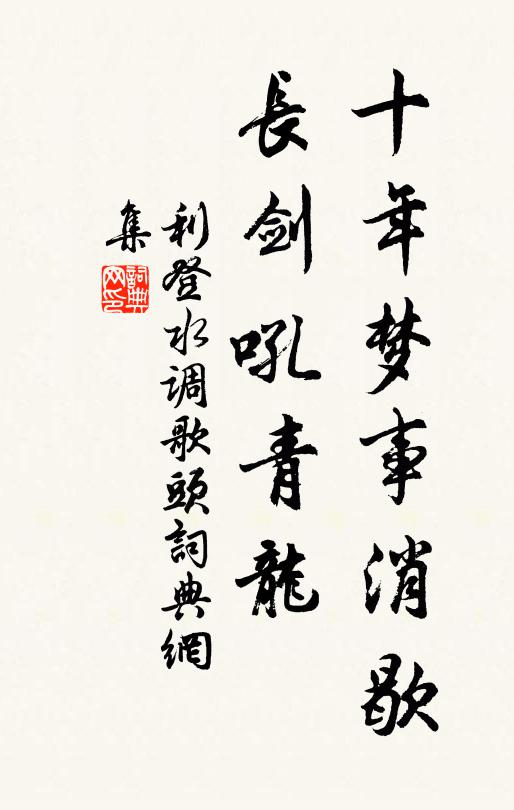 十年梦事消歇
長剑吼青龍
利登水调歌頭詞典網
集
詞典
网印